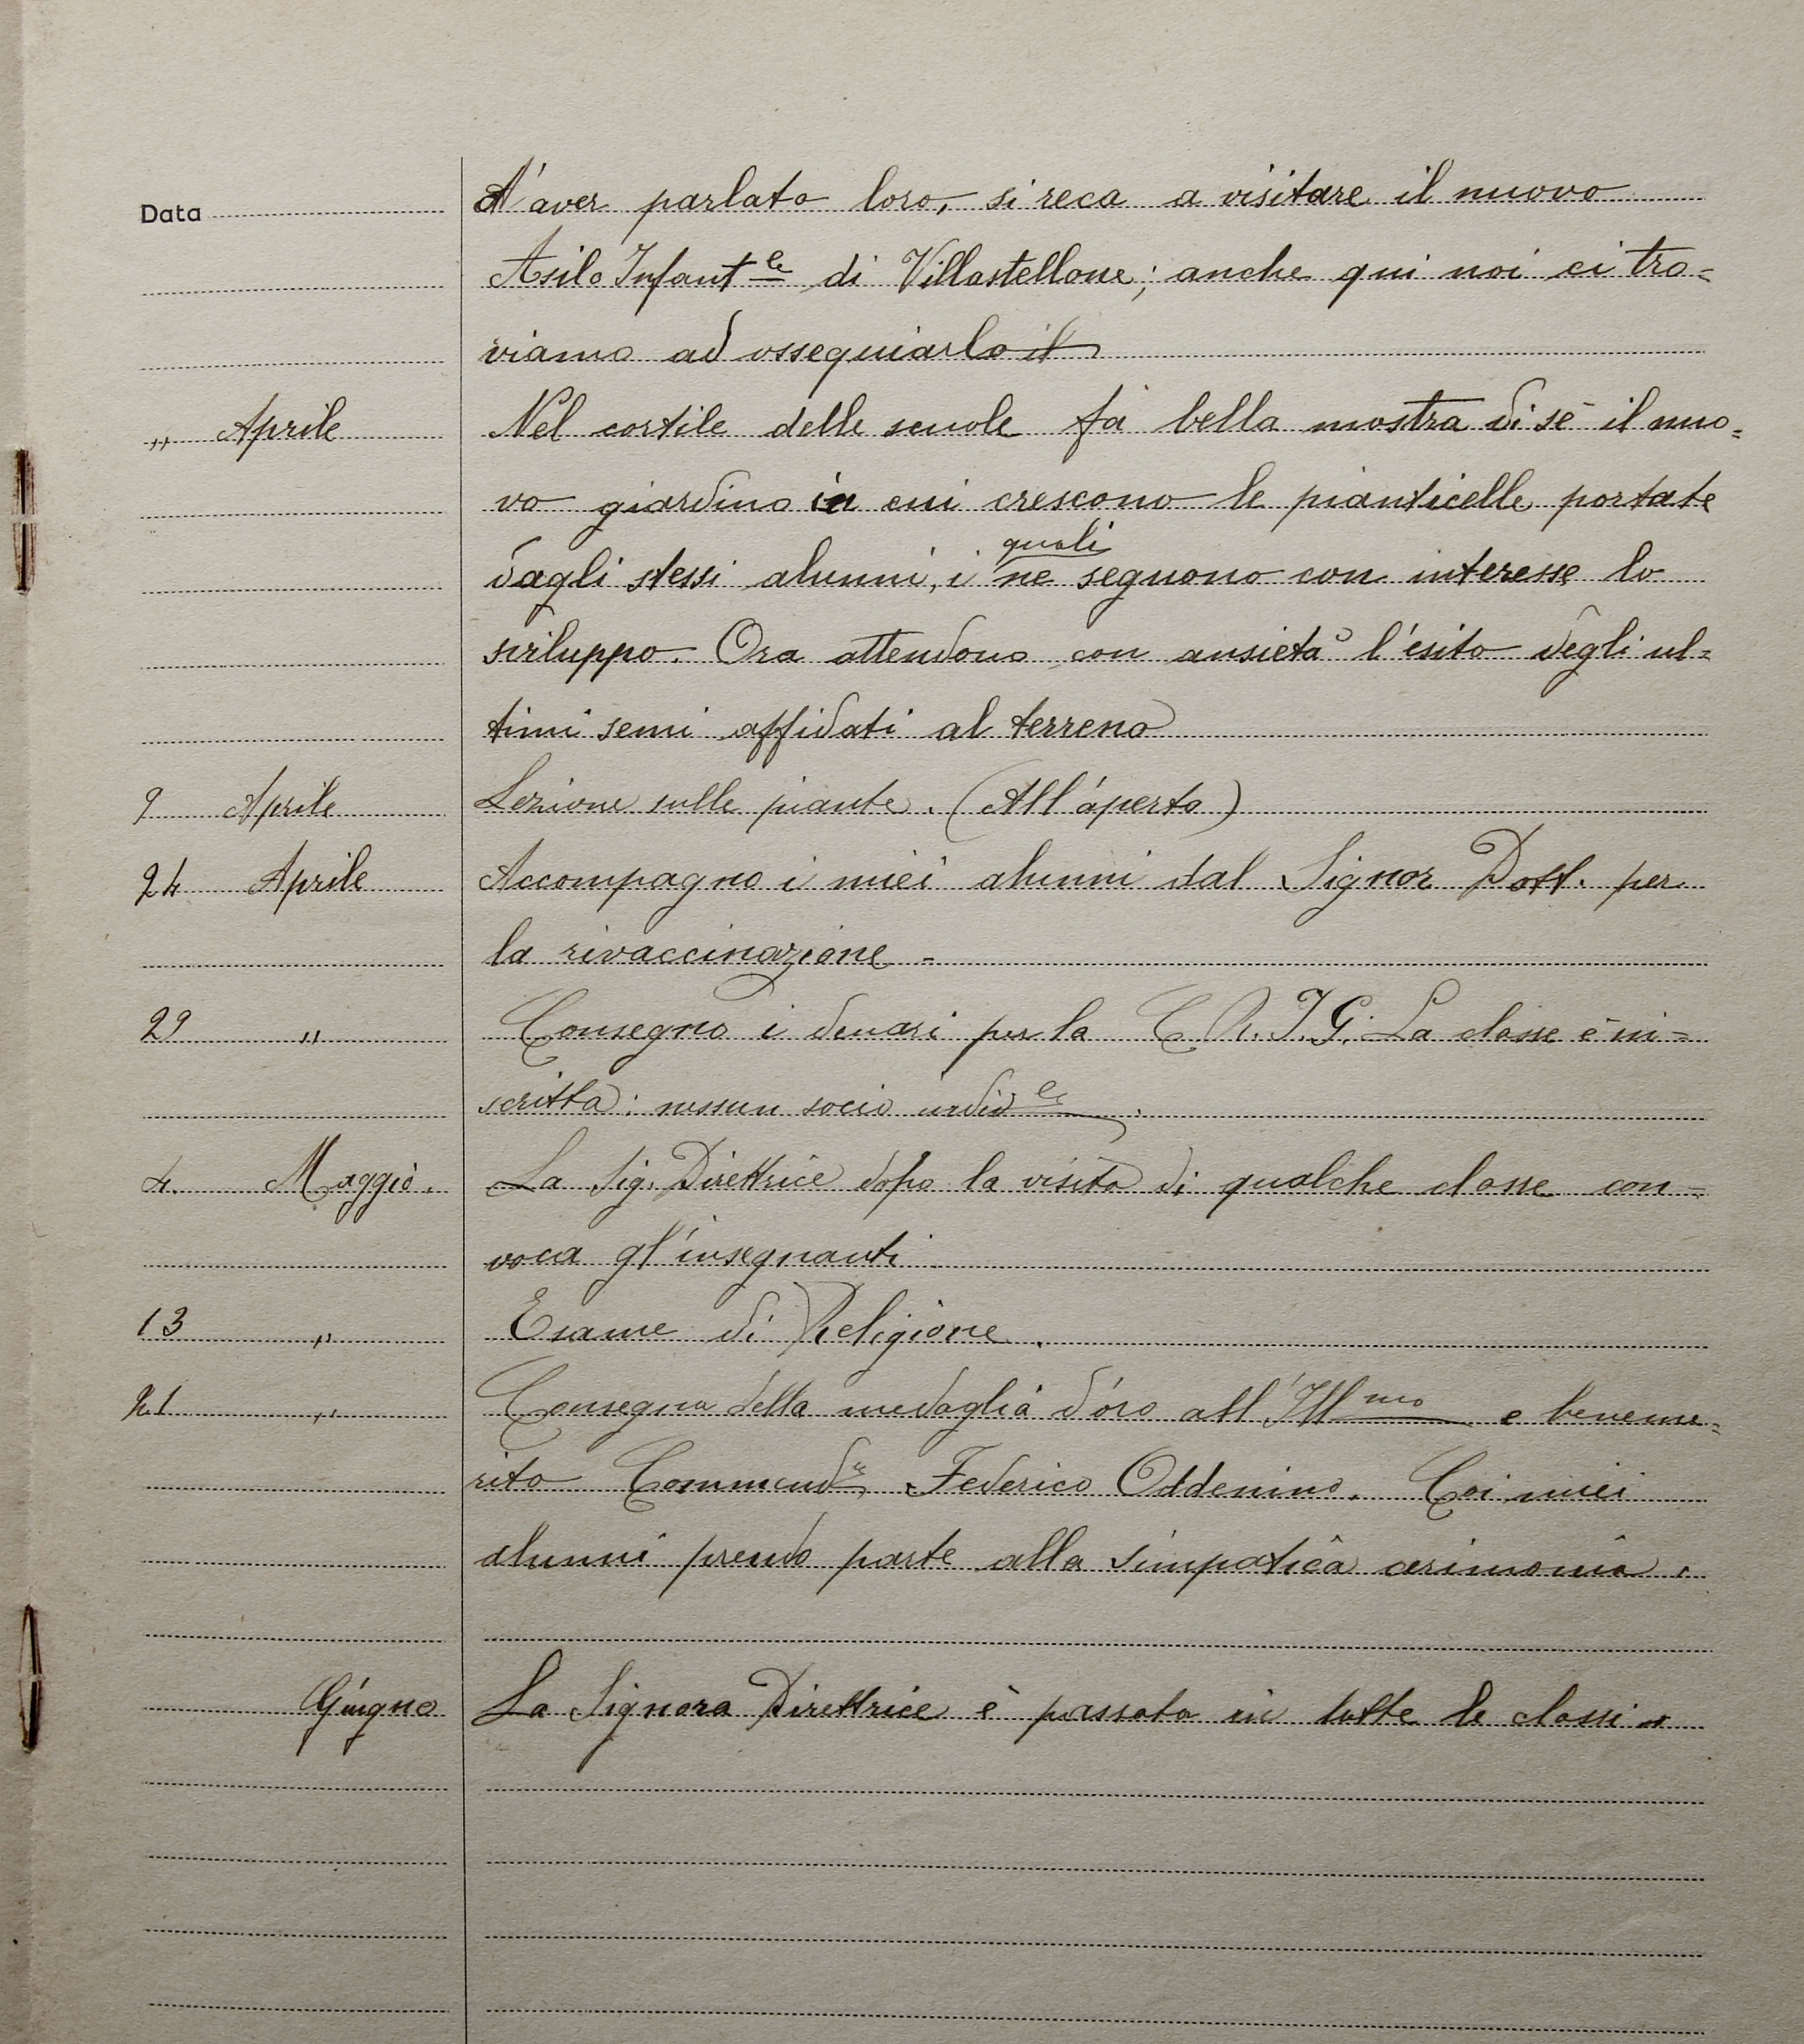 Data
d'aver parlato loro, si reca a visitare il nuovo
Asilo Infant.le di Villastellone; anche qui noi ci tro=
viamo ad ossequiarlo
" Aprile Nel cortile delle scuole fa bella mostra di sè il nuo=
vo giardino in cui crescono le pianticelle portate
dagli stessi alunni, i quali ne seguono con interesse lo
sviluppo. Ora attendono con ansietà l'esito degli ul=
timi semi affidati al terreno
9 Aprile Lezione sulle piante. (All'aperto)
24 Aprile Accompagno i miei alunni dal Signor Dott. per
la rivaccinazione -
29 " Consegno i denari per la C.R.I.G. La classe è in=
scritta: nessun socio individle.
4. Maggio. La Sig. Direttrice dopo la visita di qualche classe con=
voca gl'insegnanti
13 " Esame di Religione.
21 " Consegna della medaglia d'oro all'Illmo e beneme=
rito Commendre Federico Oddenino. Coi miei
alunni prendo parte alla simpatica cerimonia.
Giugno La Signora Direttrice è passata in tutte le classi